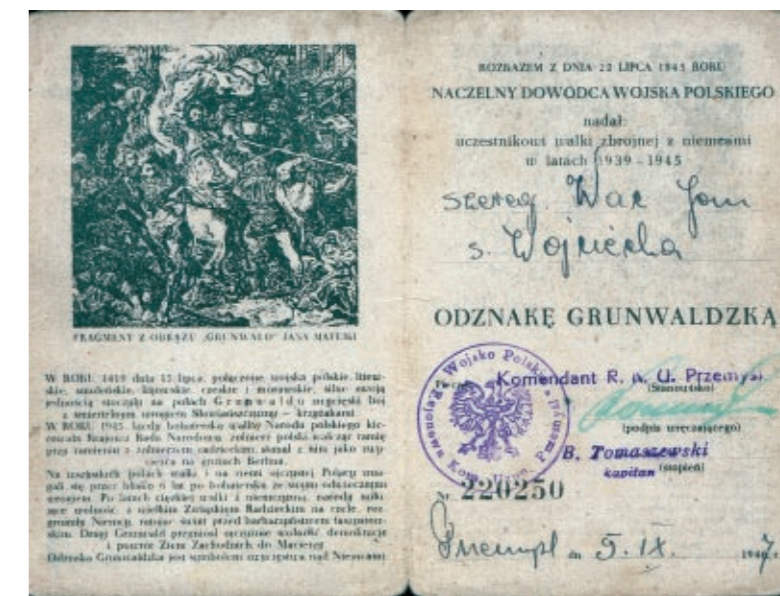 FRAGMENT Z OBRAZU „GRUNWALD” JANA MATEJKI
W ROKU 1410 dnia 15 lipca, połączone wojska polskie, litew-
skie, smoleńskie, czeskie i morawskie, silne swoją
jednością stoczyły na polach Grunwaldu zwycięski bój
z śmiertelnym wrogiem Słowiańszczyzny — krzyżakami
W ROKU 1945 kiedy bohaterską walką Narodu polskiego kie-
rowała Krajowa Rada Narodowa, żołnierz polski walcząc ramię
przy ramieniu z żołnierzem radzieckim stanął z nim jako zwy-
cięzca na gruzach Berlina.
Na wszystkich polach walki i na ziemi ojczystej Polacy zma-
gali się przez blisko 6 lat po bohatersku ze swym odwiecznym
wrogiem. Po latach ciężkiej walki z niemcami, narody miłu-
jące wolność z wielkim Związkiem Radzieckim na czele, roz-
gromiły Niemcy, ratując świat przed barbarzyństwem
Drugi Grunwald przyniósł ojczyźnie wolność, demokrację
i powrót Ziem Zachodnich do Macierzy.
Odznaka Grunwaldzka jest symbolem zwycięstwa nad Niemcami
ROZKAZEM Z DNIA 22 LIPCA 1945 ROKU
NACZELNY DOWÓDCA WOJSKA POLSKIEGO
nadał:
uczestnikowi walki zbrojnej z niemcami
w latach 1939-1945
szereg. Wac Jan
s. Wojciecha
ODZNAKĘ GRUNWALDZKĄ
Wojsko Polskie
Komendant R. K. U. Przemyśl
(Stanowisko)
(podpis wręczającego)
B. Tomaszewski
kapitan (stopień)
№ 220250
Przemyśl dn 5. IX. 1947 r